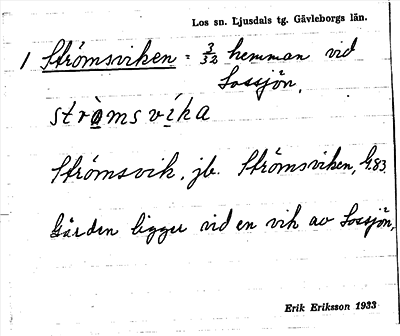 Los sn. Ljusdals tg. Gävleborgs län.
1 Strömsviken = 3/32 hemman vid
Lossjön.
strömsvika
Strömsvik, jb. Strömsviken, G.83.
Gården ligger vid en vik av Lossjön,
Erik Eriksson 1933